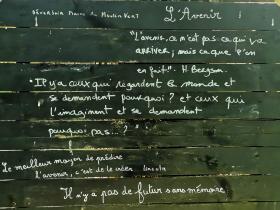 DÉVERSOIR Mairie du Moulin Vert
L'Avenir
"L'avenir, ce n'est pas ce qui va
arriver, mais ce que l'on
en fait." H Bergson
"Il y a ceux qui regardent le monde et
se demandent pourquoi? et ceux qui
l'imaginent et se demandent
pourquoi pas...?"
Le meilleur moyen de prédire
l'avenir, c'est de le créer Lincoln
Il n'y a pas de futur sans mémoire